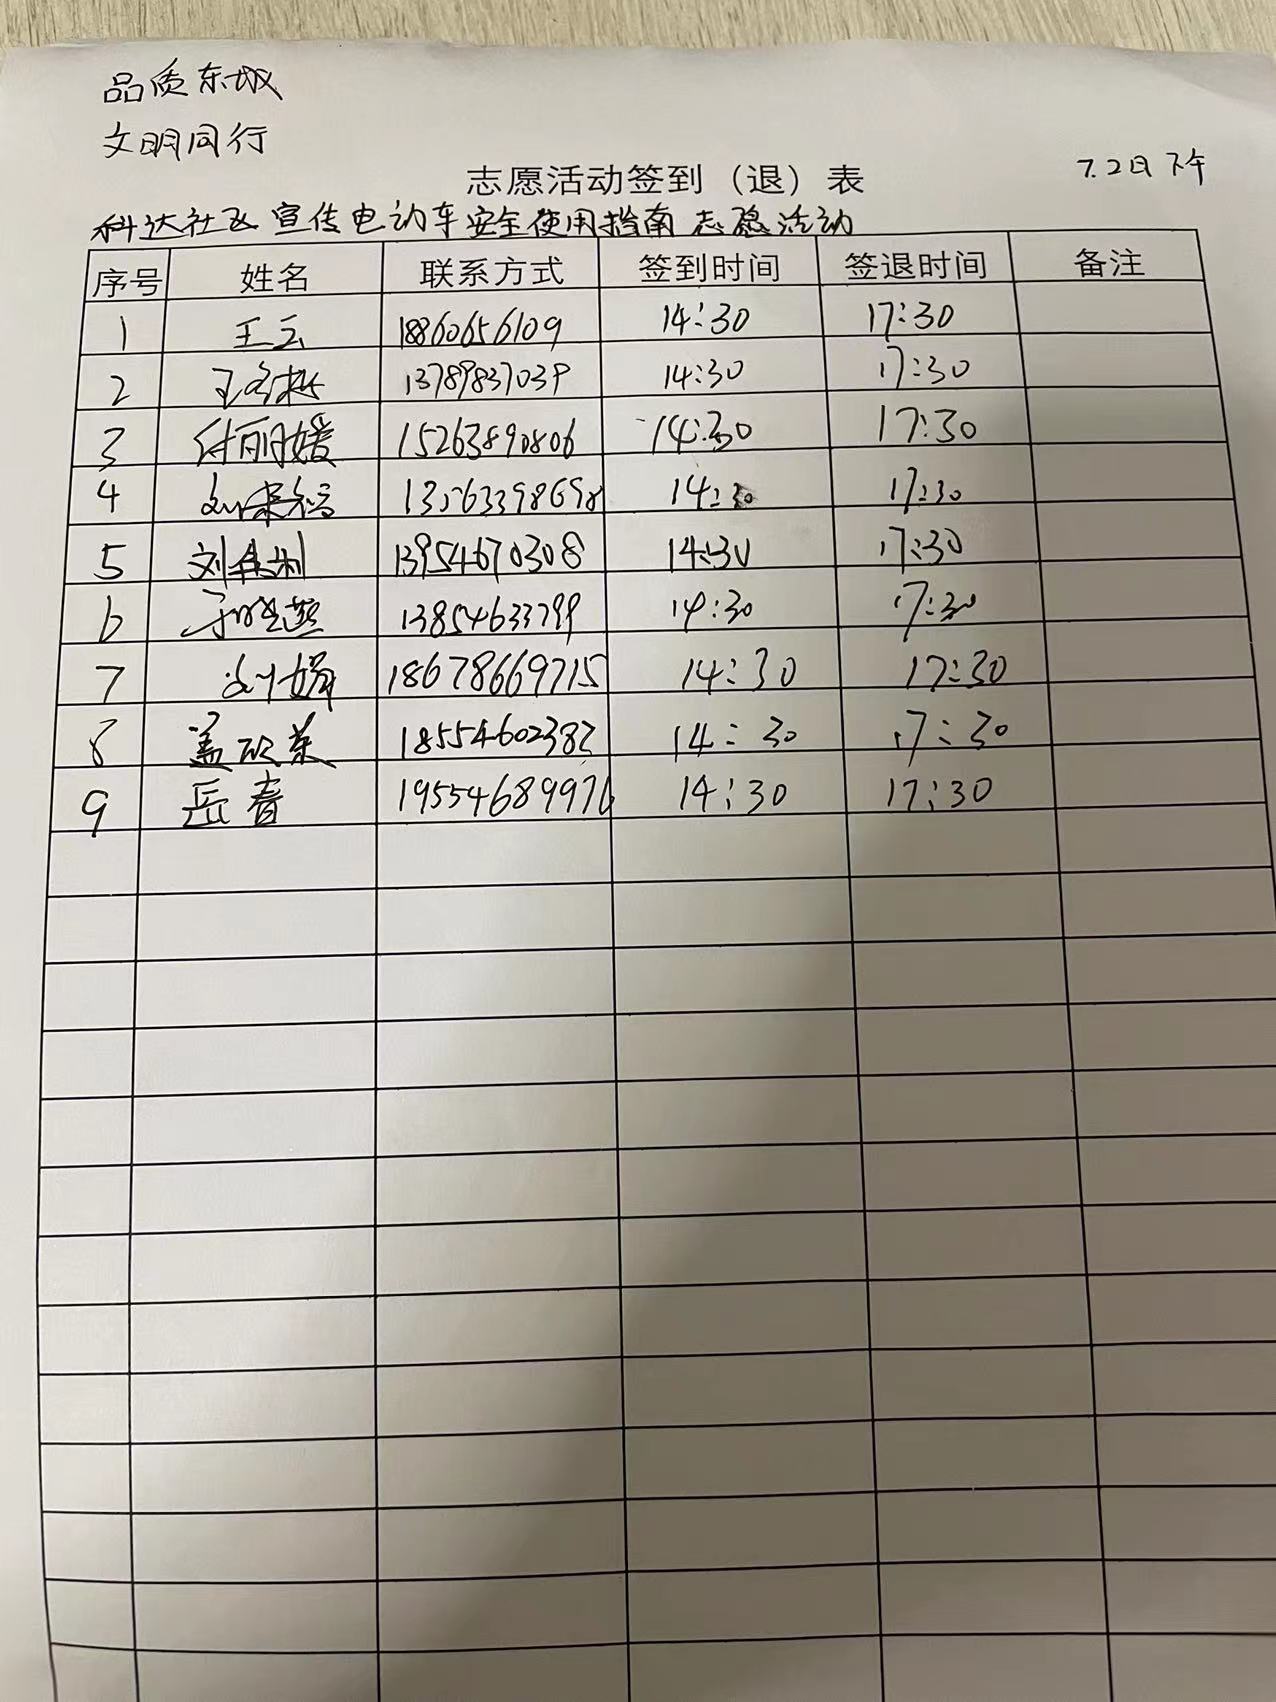 品质东城
文明同行
7.2日 下午
志愿活动签到（退）表
科达社区宣传电动车安全使用指南志愿活动
序号 姓名 联系方式 签到时间 签退时间 备注
1 王云 18860656109 14:30 17:30
2 13789837039 14:30 17:30
3 付丽媛 15263890806 14:30 17:30
4 13563398698 14:30 17:30
5 13954670308 14:30 17:30
6 13854633799 14:30 17:30
7 刘娟 18678669715 14:30 17:30
8 18554602382 14:30 17:30
9 岳春 19554689976 14:30 17:30